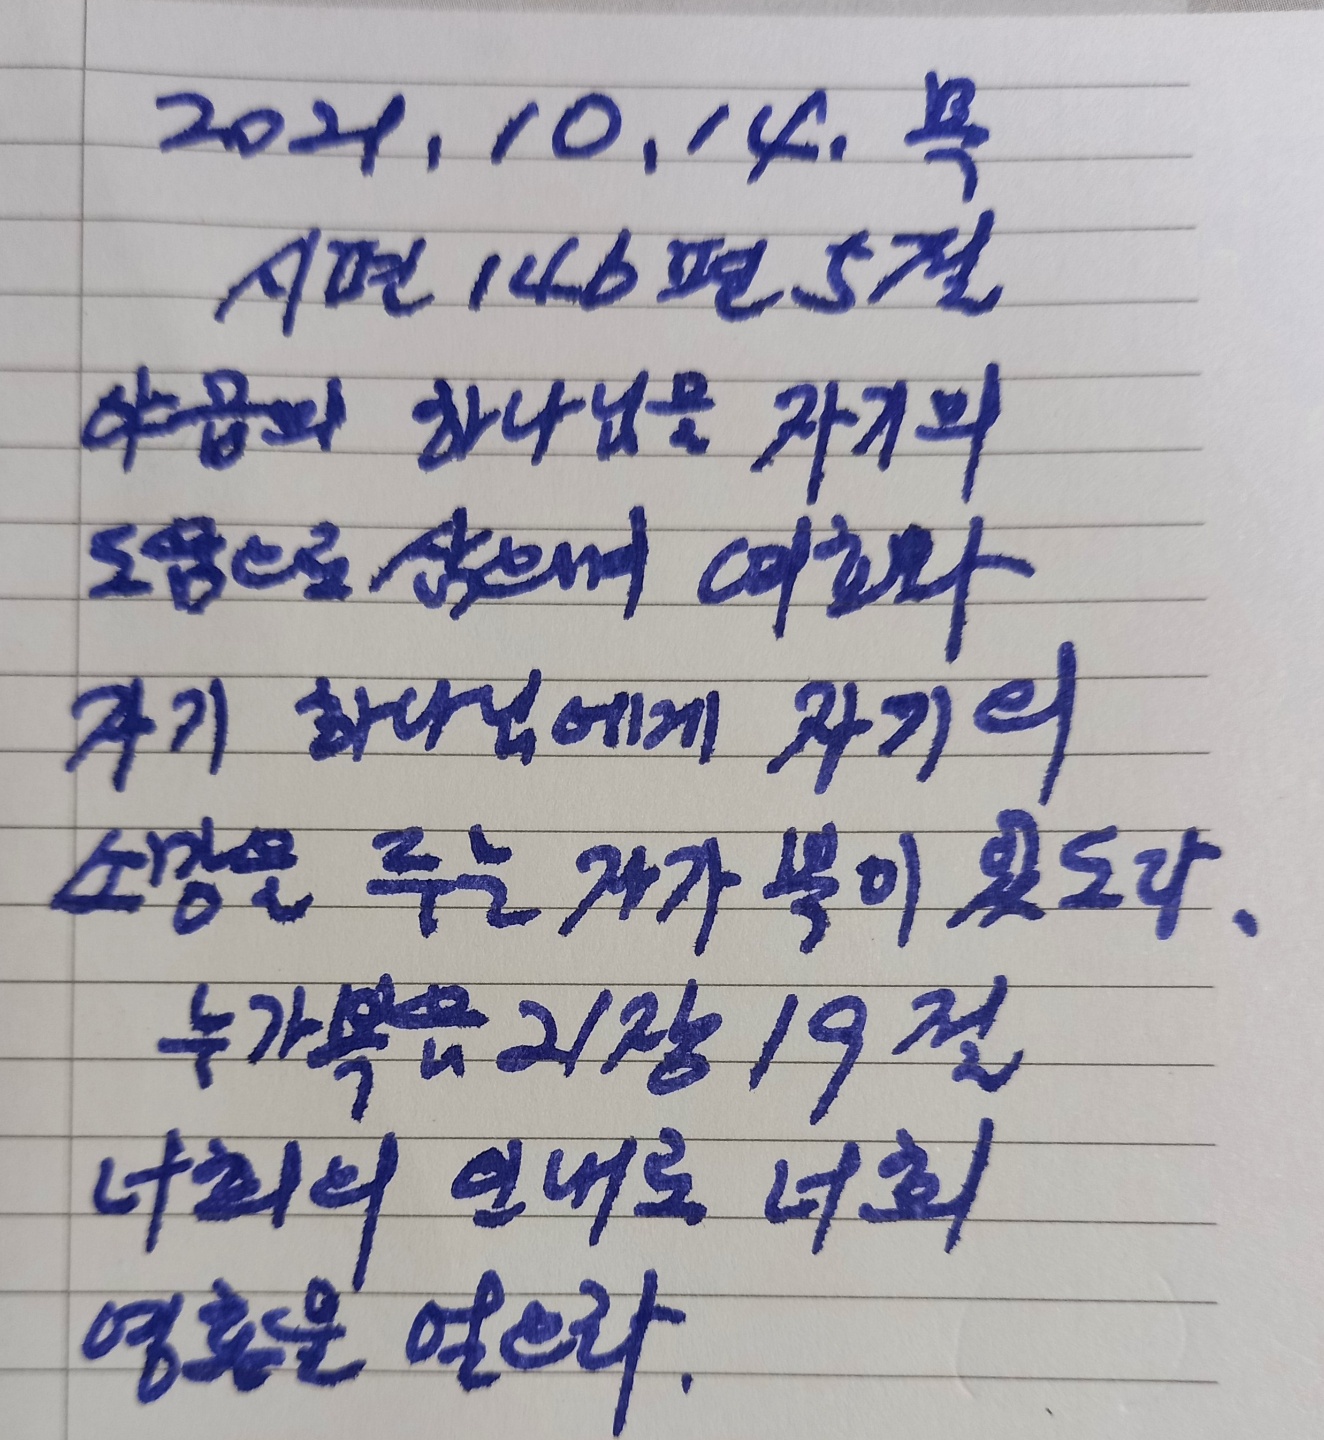 2021. 10. 14. 목
시편 146편 5절
야곱의 하나님을 자기의
도움으로 삼으며 여호와
자기 하나님에게 자기의
소망을 두는 자가 복이 있도다.
누가복음 21장 19절
너희의 인내로 너희
영혼을 얻으라.